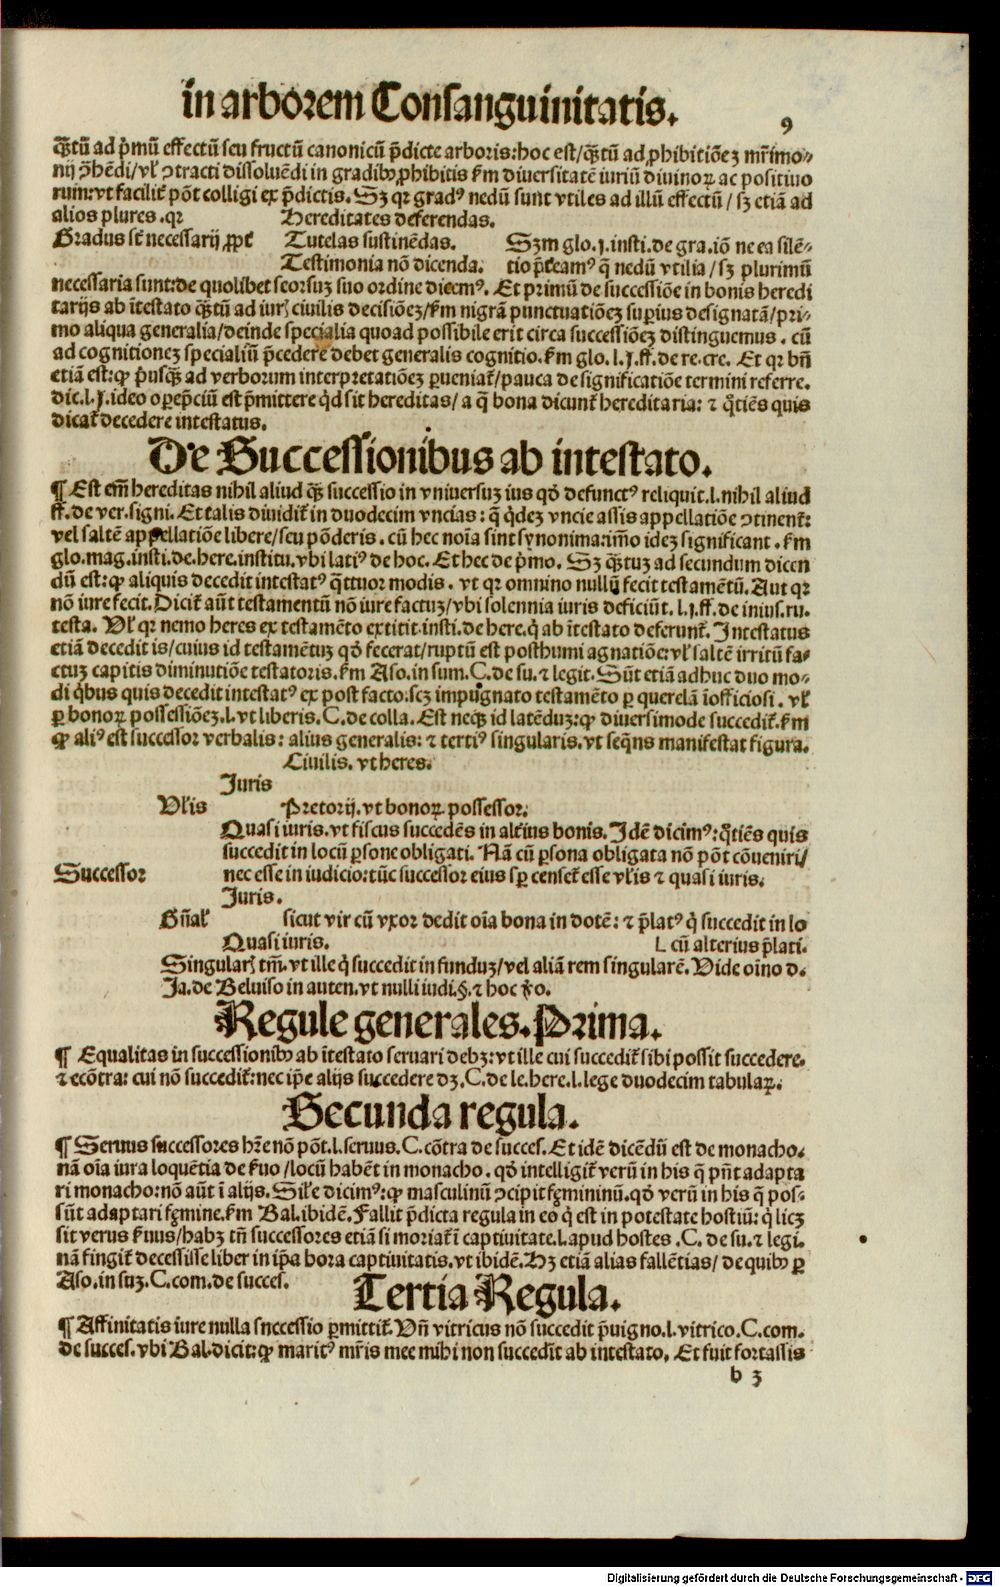 in arborem Consanguinitatis.
9
qꝫtũ ad p̃mũ effectũ seu fructũ canonicũ p̃dicte arboris: hoc est/qꝫtũ ad ꝓhibitiõeꝫ mr̃imo-
nij ꝯ̃hẽdi/vl̕ ꝯtracti dissoluẽdi in gradibꝰ ꝓhibitis ẜm diuersitatẽ iuriũ diuinoꝝ ac positiuo
rum: vt facilit̕ põt colligi ex p̃dictis. Sꝫ qꝛ gradꝰ nedũ sunt vtiles ad illũ effectũ/sꝫ etiã ad
alios plures. qꝛ
Hereditates deferendas.
Gradus st̃ necessarij ꝓpt̕
Tutelas sustinẽdas.
Sꝫm glo. j. insti. de gra. iõ ne ea silẽ-
Testimonia nõ dicenda.
tio p̃t̕eamꝰ q̃ nedũ vtilia/sꝫ plurimũ
necessaria sunt: de quolibet seorsuꝫ suo ordine dicemꝰ. Et primũ de successiõe in bonis heredi
tarijs ab ĩtestato qꝫtũ ad iur̕ ciuilis decisiõeꝫ/ẜm nigrã punctuatiõeꝫ suꝑius designatã/pri-
mo aliqua generalia/deinde specialia quoad possibile erit circa successiõeꝫ distinguemus. cũ
ad cognitioneꝫ specialiũ p̃cedere debet generalis cognitio. ẜm glo. l. j. ff. de re. cre. Et qꝛ bñ
etiã est: ꝙ p̃usqꝫ ad verborum interpretatiõeꝫ ꝑueniat̕/pauca de significatiõe termini referre.
dic. l. j. ideo oꝑep̃ciũ est p̃mittere qd̕ sit hereditas/a q̃ bona dicunt̕ hereditaria: ⁊ q̃tiẽs quis
dicat̕ decedere intestatus.
De Successionibus ab intestato.
¶ Est em̃ hereditas nihil aliud qꝫ successio in vniuersuꝫ ius qd̕ defunctꝰ reliquit. l. nihil aliud
ff. de ver. signi. Et talis diuidit̕ in duodecim vncias: q̃ q̃deꝫ vncie assis appellatiõe ꝯtinent̕:
vel saltẽ appellatiõe libere/seu põderis. cũ hec noĩa sint synonima: im̃o ideꝫ significant. ẜm
glo. mag. insti. de. here. institu. vbi latiꝰ de hoc. Et hec de p̃mo. Sꝫ qꝫtuꝫ ad secundum dicen
dũ est: ꝙ aliquis decedit intestatꝰ q̃ttuor modis. vt qꝛ omnino nullũ fecit testamẽtũ. Aut qꝛ
nõ iure fecit. Dicit̕ aũt testamentũ nõ iure factuꝫ/vbi solennia iuris deficiũt. l. j. ff. de inius. ru.
testa. Vl̕ qꝛ nemo heres ex testamẽto extitit. insti. de here. q̃ ab ĩtestato deferunt̕. Intestatus
etiã decedit is/cuius id testamẽtuꝫ qd̕ fecerat/ruptũ est posthumi agnatiõe: vl̕ saltẽ irritũ fa-
ctuꝫ capitis diminutiõe testatoris. ẜm Aso. in sum. C. de su. ⁊ legit. Sũt etiã adhuc duo mo-
di q̃bus quis decedit intestatꝰ ex post facto: scꝫ impugnato testamẽto ꝑ querelã ĩofficiosi. vl̕
ꝑ bonoꝝ possessiõeꝫ. l. vt liberis. C. de colla. Est neqꝫ id latẽduꝫ: ꝙ diuersimode succedit̕. ẜm
ꝙ aliꝰ est successor verbalis: alius generalis: ⁊ tertiꝰ singularis. vt seq̃ns manifestat figura.
Ciuilis. vt heres.
Juris
Vl̕is
Pretorij. vt bonoꝝ possessor.
Quasi iuris. vt fiscus succedẽs in alt̕ius bonis. Idẽ dicimꝰ: q̃tiẽs quis
succedit in locũ ꝑsone obligati. Nã cũ ꝑsona obligata nõ põt cõueniri/
Successor
nec esse in iudicio: tũc successor eius sꝑ censet̕ esse vl̕is ⁊ quasi iuris.
Juris.
Gñal̕
sicut vir cũ vxor dedit oĩa bona in dotẽ: ⁊ p̃latꝰ q̃ succedit in lo
Quasi iuris.
L cũ alterius p̃lati.
Singular̕ tm̃. vt ille q̃ succedit in funduꝫ/vel aliã rem singularẽ. Vide oĩno d.
Ja. de Beluiso in auten. vt nulli iudi. §. ⁊ hoc ꝟo.
Regule generales. Prima.
¶ Equalitas in successionibꝰ ab ĩtestato seruari debꝫ: vt ille cui succedit̕ sibi possit succedere.
⁊ ecõtra: cui nõ succedit̕: nec ip̃e alijs succedere dꝫ. C. de le. here. l. lege duodecim tabulaꝝ.
Secunda regula.
¶ Seruus successores hr̃e nõ põt. l. seruus. C. cõtra de succes. Et idẽ dicẽdũ est de monacho.
nã oĩa iura loquẽtia de ẜuo/locũ habẽt in monacho. qd̕ intelligit̕ verũ in his q̃ pñt adapta
ri monacho: nõ aũt ĩ alijs. Sil̕e dicimꝰ: ꝙ masculinũ ꝯcipit fęmininũ. qd̕ verũ in his q̃ pos-
sũt adaptari fęmine. ẜm Bal. ibidẽ. Fallit p̃dicta regula in eo q̃ est in potestate hostiũ: q̃ licꝫ
sit verus ẜuus/habꝫ tñ successores etiã si moriat̕ ĩ captiuitate. l. apud hostes. C. de su. ⁊ legi.
nã fingit̕ decessisse liber in ip̃a hora captiuitatis. vt ibidẽ. Hꝫ etiã alias fallẽtias/de quibꝰ ꝑ
Aso. in suꝫ. C. com. de succes.
Tertia Regula.
¶ Affinitatis iure nulla snccessio ꝑmittit̕. Vñ vitricus nõ succedit p̃uigno. l. vitrico. C. com.
de succes. vbi Bal. dicit: ꝙ maritꝰ mr̃is mee mihi non succedit ab intestato. Et fuit fortassis
b 3
Digitalisierung gefördert durch die Deutsche Forschungsgemeinschaft - DFG